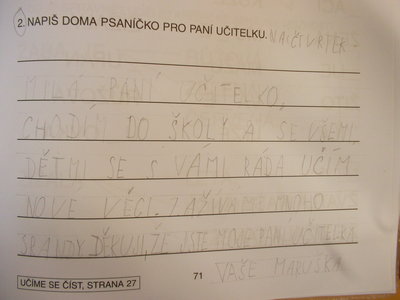 2. NAPIŠ DOMA PSANÍČKO PRO PANÍ UČITELKU. NA ČTVRTEK
MILÁ PANÍ UČITELKO,
CHODÍM DO ŠKOLY A SE VŠEMI
DĚTMI SE S VÁMI RÁDA UČÍM
NOVÉ VĚCI. ZAŽÍVÁME MNOHO
SRANDY DĚKUJI, ŽE JSTE MOJE PANÍ UČITELKA
VAŠE MARUŠKA
UČÍME SE ČÍST, STRANA 27
71